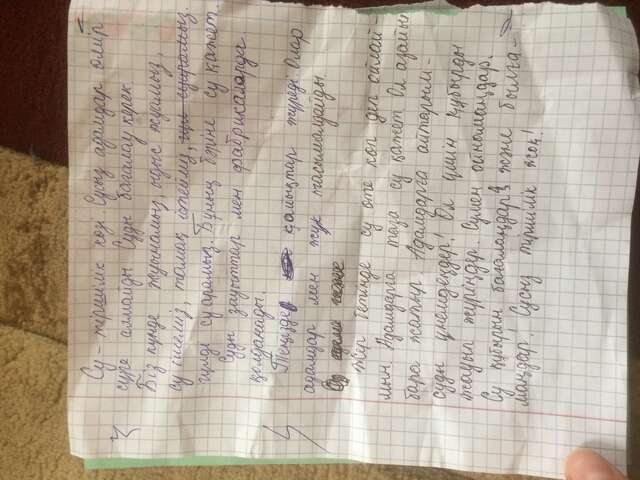 Су - тіршілік көзі. Сусыз адамдар өмір
сүре алмайды. Суды бағалау керек.
Біз күнде жуынамыз, ыдыс жуамыз,
су ішеміз, тамақ ішеміз, гүл суарамыз.
гүлді суарамыз. Бұның бәріне су қажет.
Суды зауыттар мен фабрикаларда
қолданады.
Теңізде қайықтар жүреді. Олар
адамдар мен жүк тасымалдайды.
Жер бетінде су өте көп деп ойлай-
мын. Адамдарға таза су қажет. Ол азайып
бара жатыр. Адамдарға айтарым-
суды үнемдеңдер! Ол үшін құбырды
жауып жүріңдер. Сумен ойнамаңдар.
Су құбырын бағалаңдар және былға-
маңдар! Сусыз тіршілік жоқ!